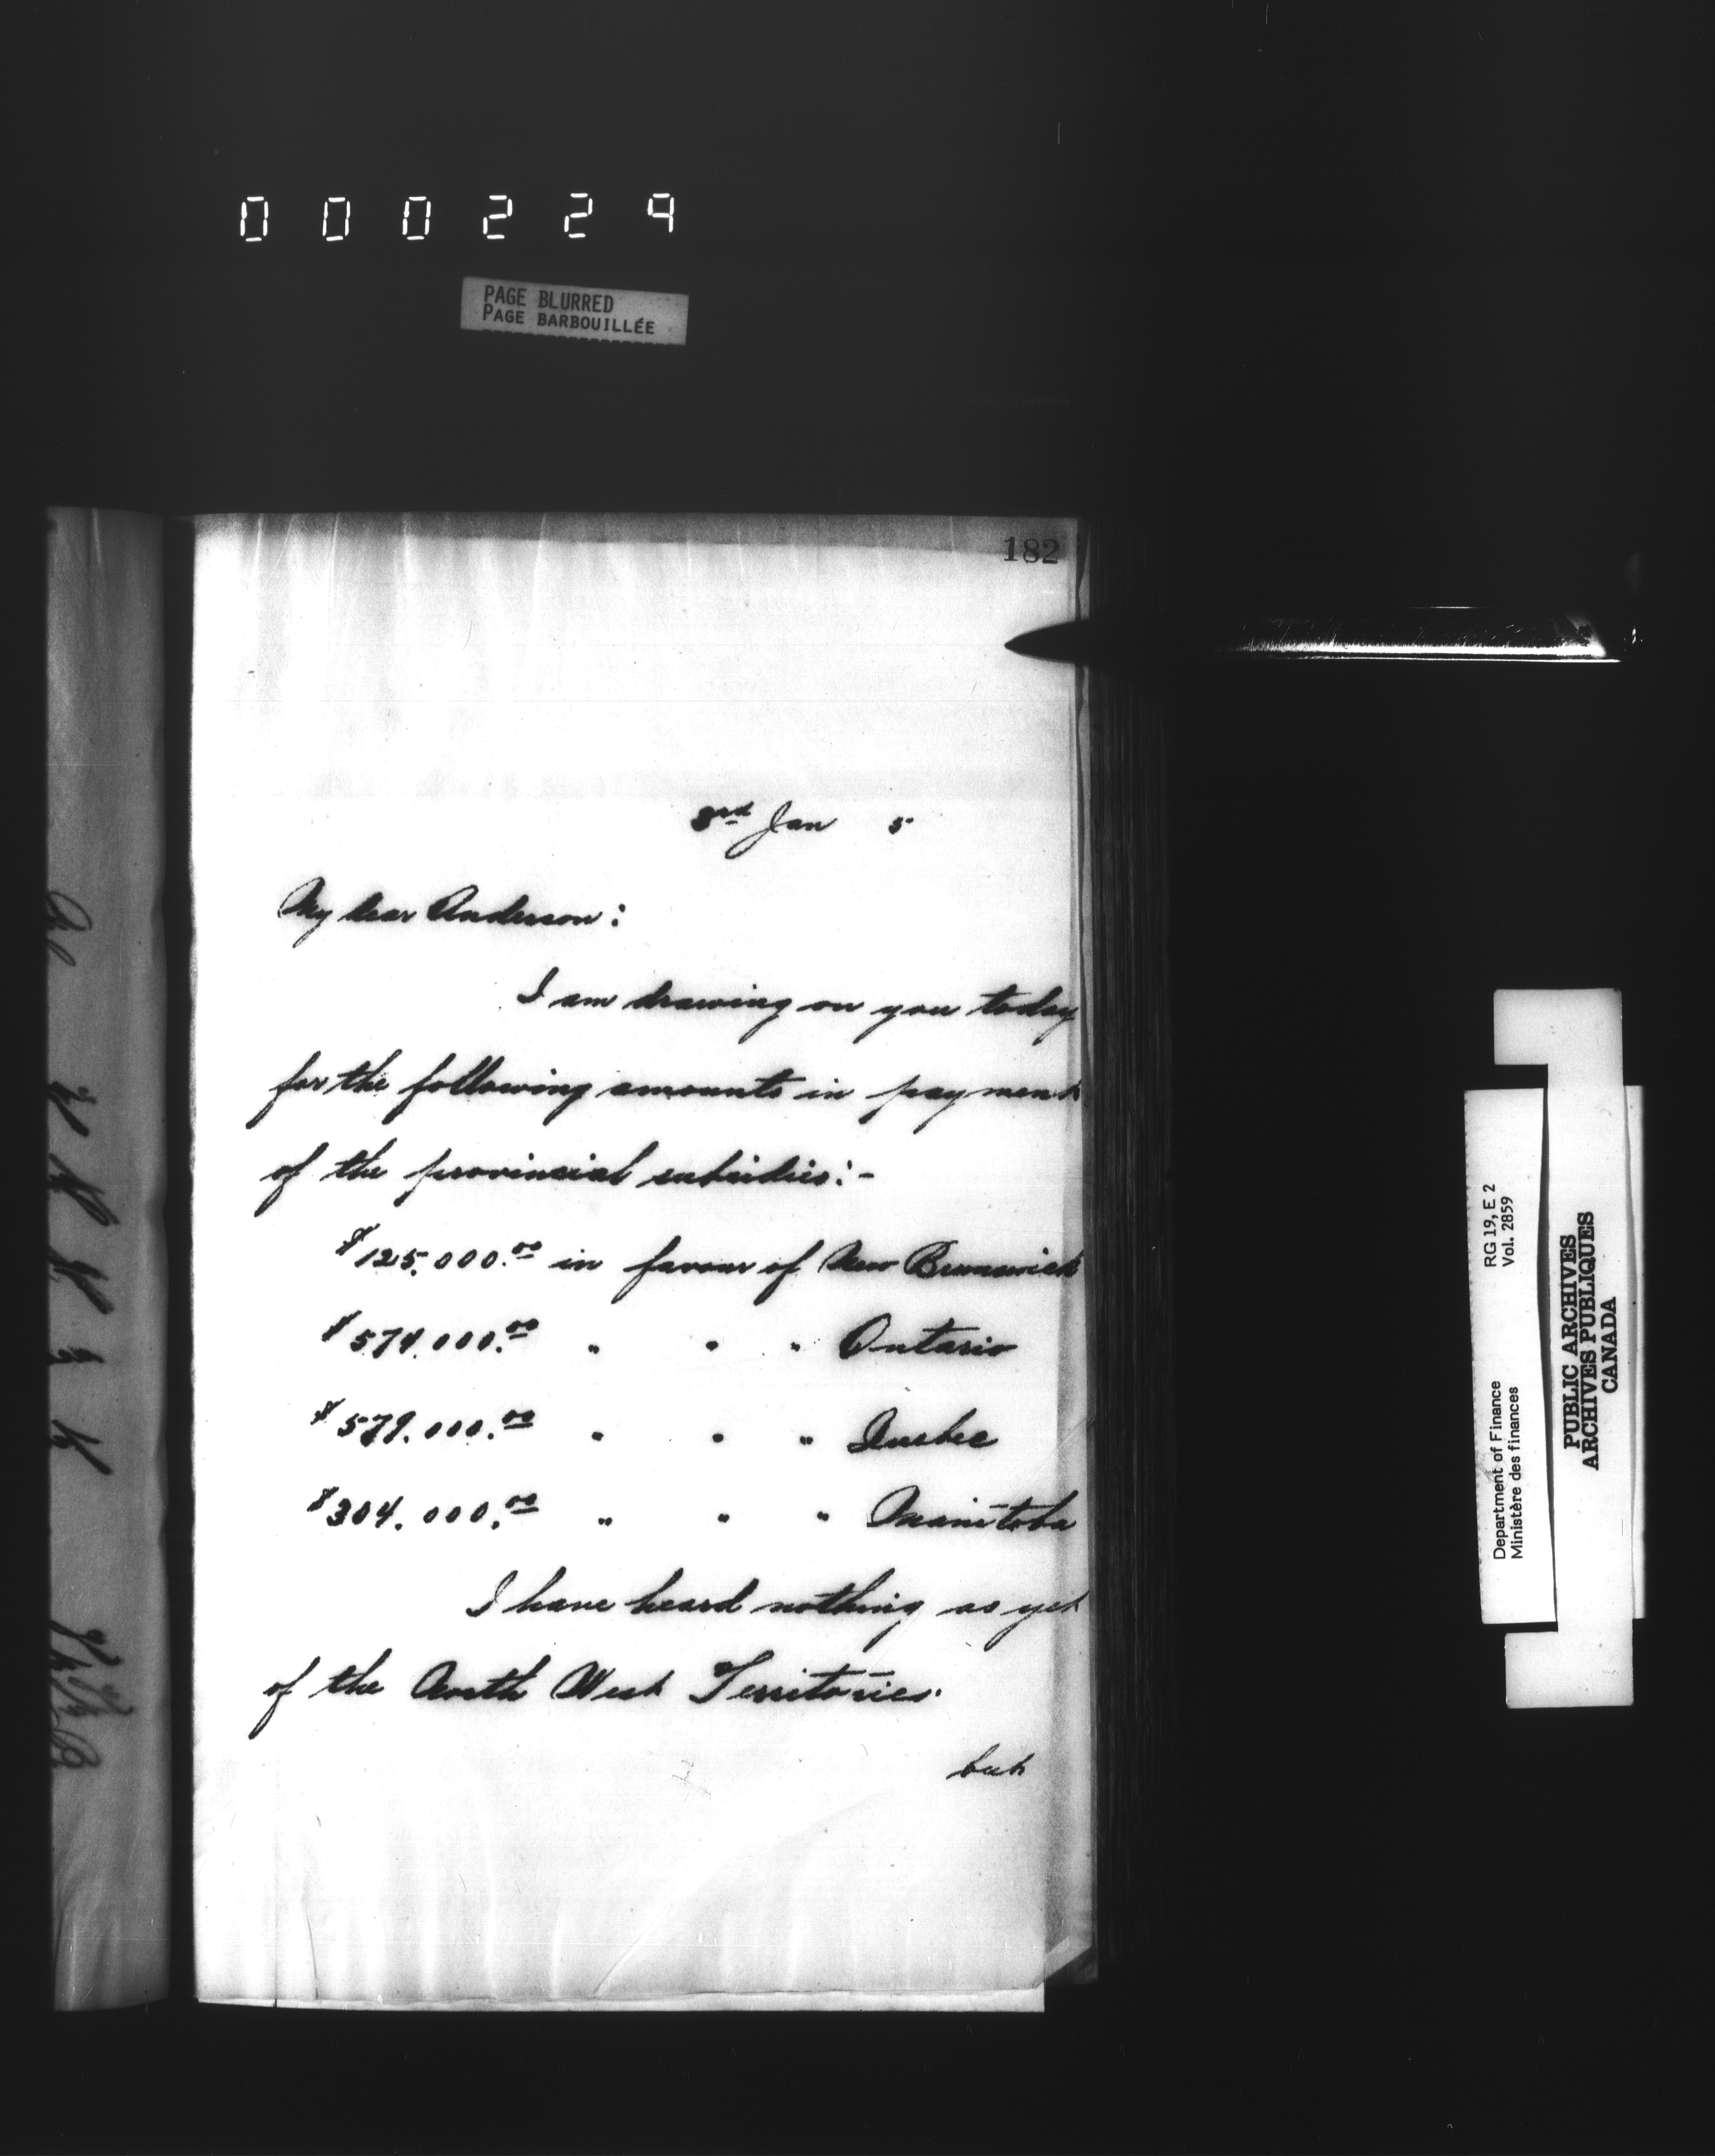 000229
PAGE BLURRED
PAGE BARBOUILLÉE
182
3rd Jan 5
My dear Anderson:
I am drawing on you today
for the following amounts in payment
of the provincial subsidies:-
$125.000.00 in favour of New Brunswick
$574.000.00 " " " Ontario
$579.000.00 " " " Quebec
$304.000.00 " " " Manitoba
I have heard nothing as yet
of the North West Territories.
but
RG 19, E 2
Vol. 2859
Department of Finance
Ministère des finances
PUBLIC ARCHIVES
ARCHIVES PUBLIQUES
CANADA